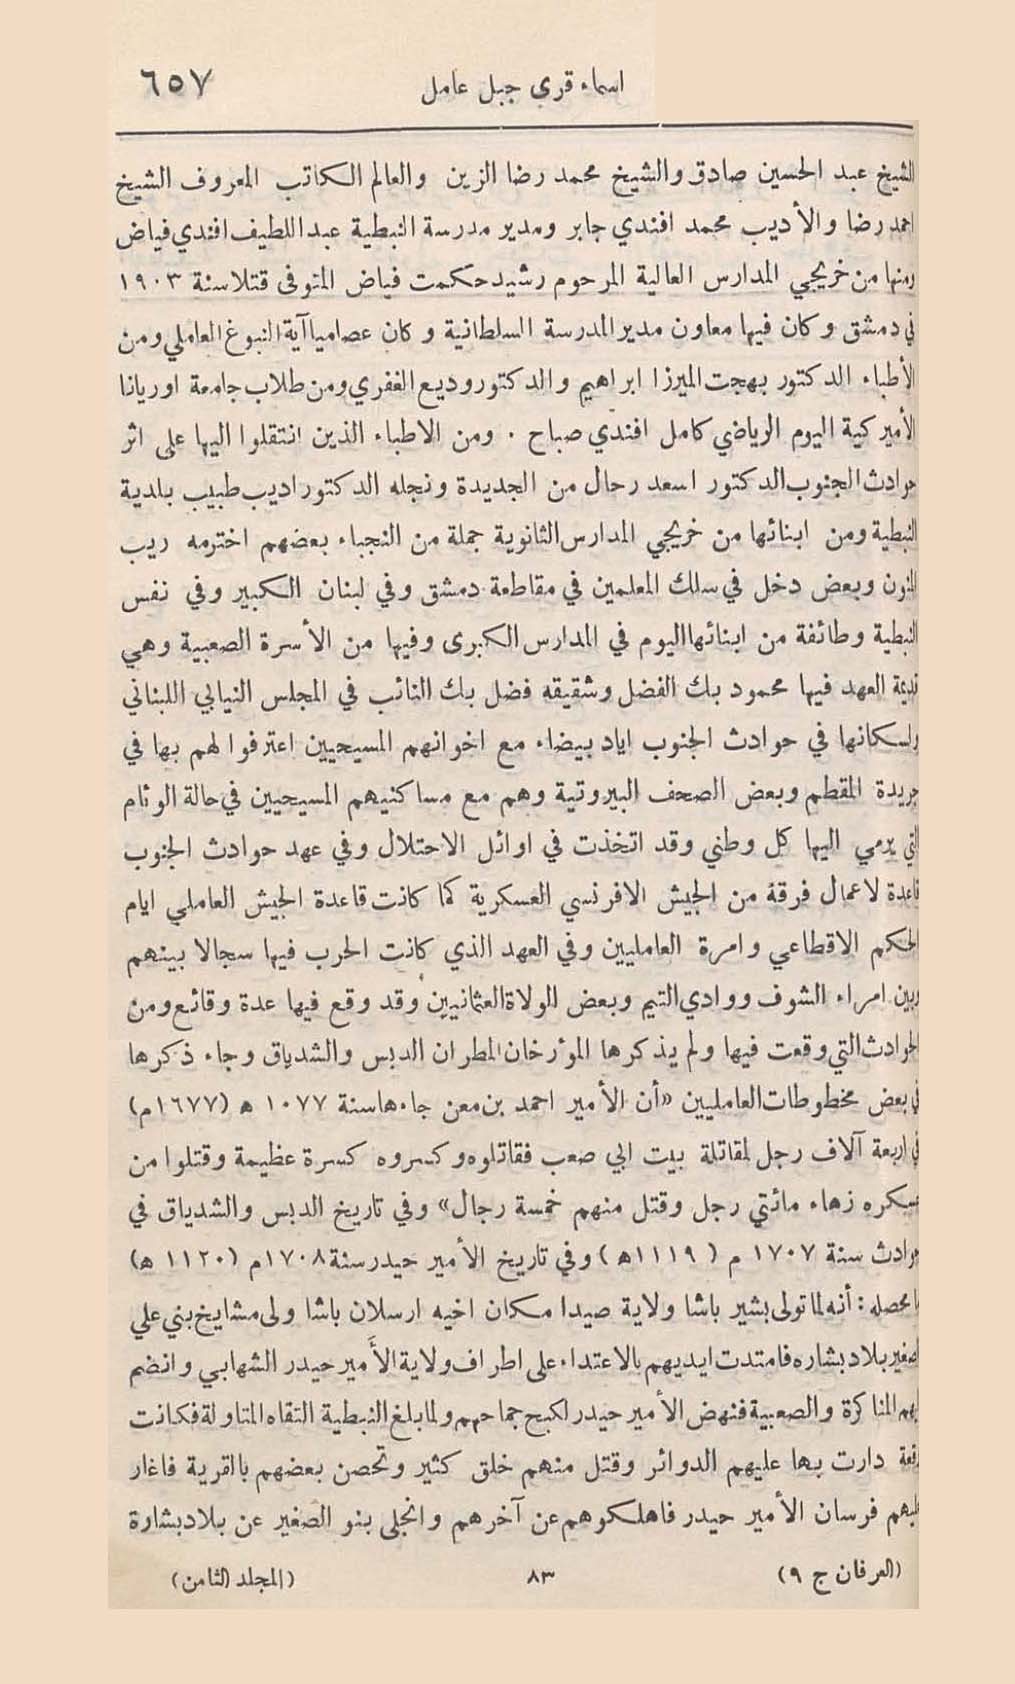 اسماء قرى جبل عامل ٦٥٧
الشيخ عبد الحسين صادق والشيخ محمد رضا الزين والعالم الكاتب المعروف الشيخ
احمد رضا والأديب محمد افندي جابر ومدير مدرسة النبطية عبد اللطيف افندي فياض
ومنها من خريجي المدارس العالية المرحوم رشيد حكمت فياض المتوفى قتلا سنة ١٩٠٣
في دمشق وكان فيها معاون مدير المدرسة السلطانية وكان عصاميا آية النبوغ العاملي ومن
الأطباء الدكتور بهجت الميرزا ابراهيم والدكتور وديع الغفري ومن طلاب جامعة اوريانا
الأميركية اليوم الرياضي كامل افندي صباح . ومن الاطباء الذين انتقلوا اليها على اثر
حوادث الجنوب الدكتور اسعد رحال من الجديدة ونجله الدكتور اديب طبيب بلدية
النبطية ومن ابنائها من خريجي المدارس الثانوية جملة من النجباء بعضهم اخترمه ريب
المنون وبعض دخل في سلك المعلمين في مقاطعة دمشق وفي لبنان الكبير وفي نفس
النبطية وطائفة من ابنائها اليوم في المدارس الكبرى وفيها من الأسرة الصعبية وهي
قديمة العهد فيها محمود بك الفضل وشقيقه فضل بك النائب في المجلس النيابي اللبناني
ولسكانها في حوادث الجنوب اياد بيضاء مع اخوانهم المسيحيين اعترفوا لهم بها في
جريدة المقطم وبعض الصحف البيروتية وهم مع مساكنيهم المسيحيين في حالة الوئام
التي يرمي اليها كل وطني وقد اتخذت في اوائل الاحتلال وفي عهد حوادث الجنوب
قاعدة لاعمال فرقة من الجيش الافرنسي العسكرية كما كانت قاعدة الجيش العاملي ايام
الحكم الاقطاعي وامرة العامليين وفي العهد الذي كانت الحرب فيها سجالا بينهم
وبين امراء الشوف ووادي التيم وبعض الولاة العثمانيين وقد وقع فيها عدة وقائع ومن
الحوادث التي وقعت فيها ولم يذكرها المؤرخان المطران الدبس والشدياق وجاء ذكرها
في بعض مخطوطات العامليين «أن الأمير احمد بن معن جاءها سنة ١٠٧٧ ه (١٦٧٧ م)
في اربعة آلاف رجل لمقاتلة بيت ابي صعب فقاتلوه وكسروه كسرة عظيمة وقتلوا من
عسكره زهاء مائتي رجل وقتل منهم خمسة رجال» وفي تاريخ الدبس والشدياق في
حوادث سنة ١٧٠٧ م (١١١٩ ه) وفي تاريخ الأمير حيدر سنة ١٧٠٨ م (١١٢٠ ه)
ما محصله : أنه لما تولى بشير باشا ولاية صيدا مكان اخيه ارسلان باشا ولى مشايخ بني علي
الصغير بلاد بشاره فامتدت ايديهم بالاعتداء على اطراف ولاية الأمير حيدر الشهابي وانضم
اليهم المناكرة والصعبية فنهض الأمير حيدر لكبح جماحهم ولما بلغ النبطية التقاه المتاولة فكانت
وقعة دارت بها عليهم الدوائر وقتل منهم خلق كثير وتحصن بعضهم بالقرية فاغار
عليهم فرسان الأمير حيدر فاهلكوهم عن آخرهم وانجلى بنو الصغير عن بلاد بشارة
(العرفان ج ٩) ٨٣ (المجلد الثامن)